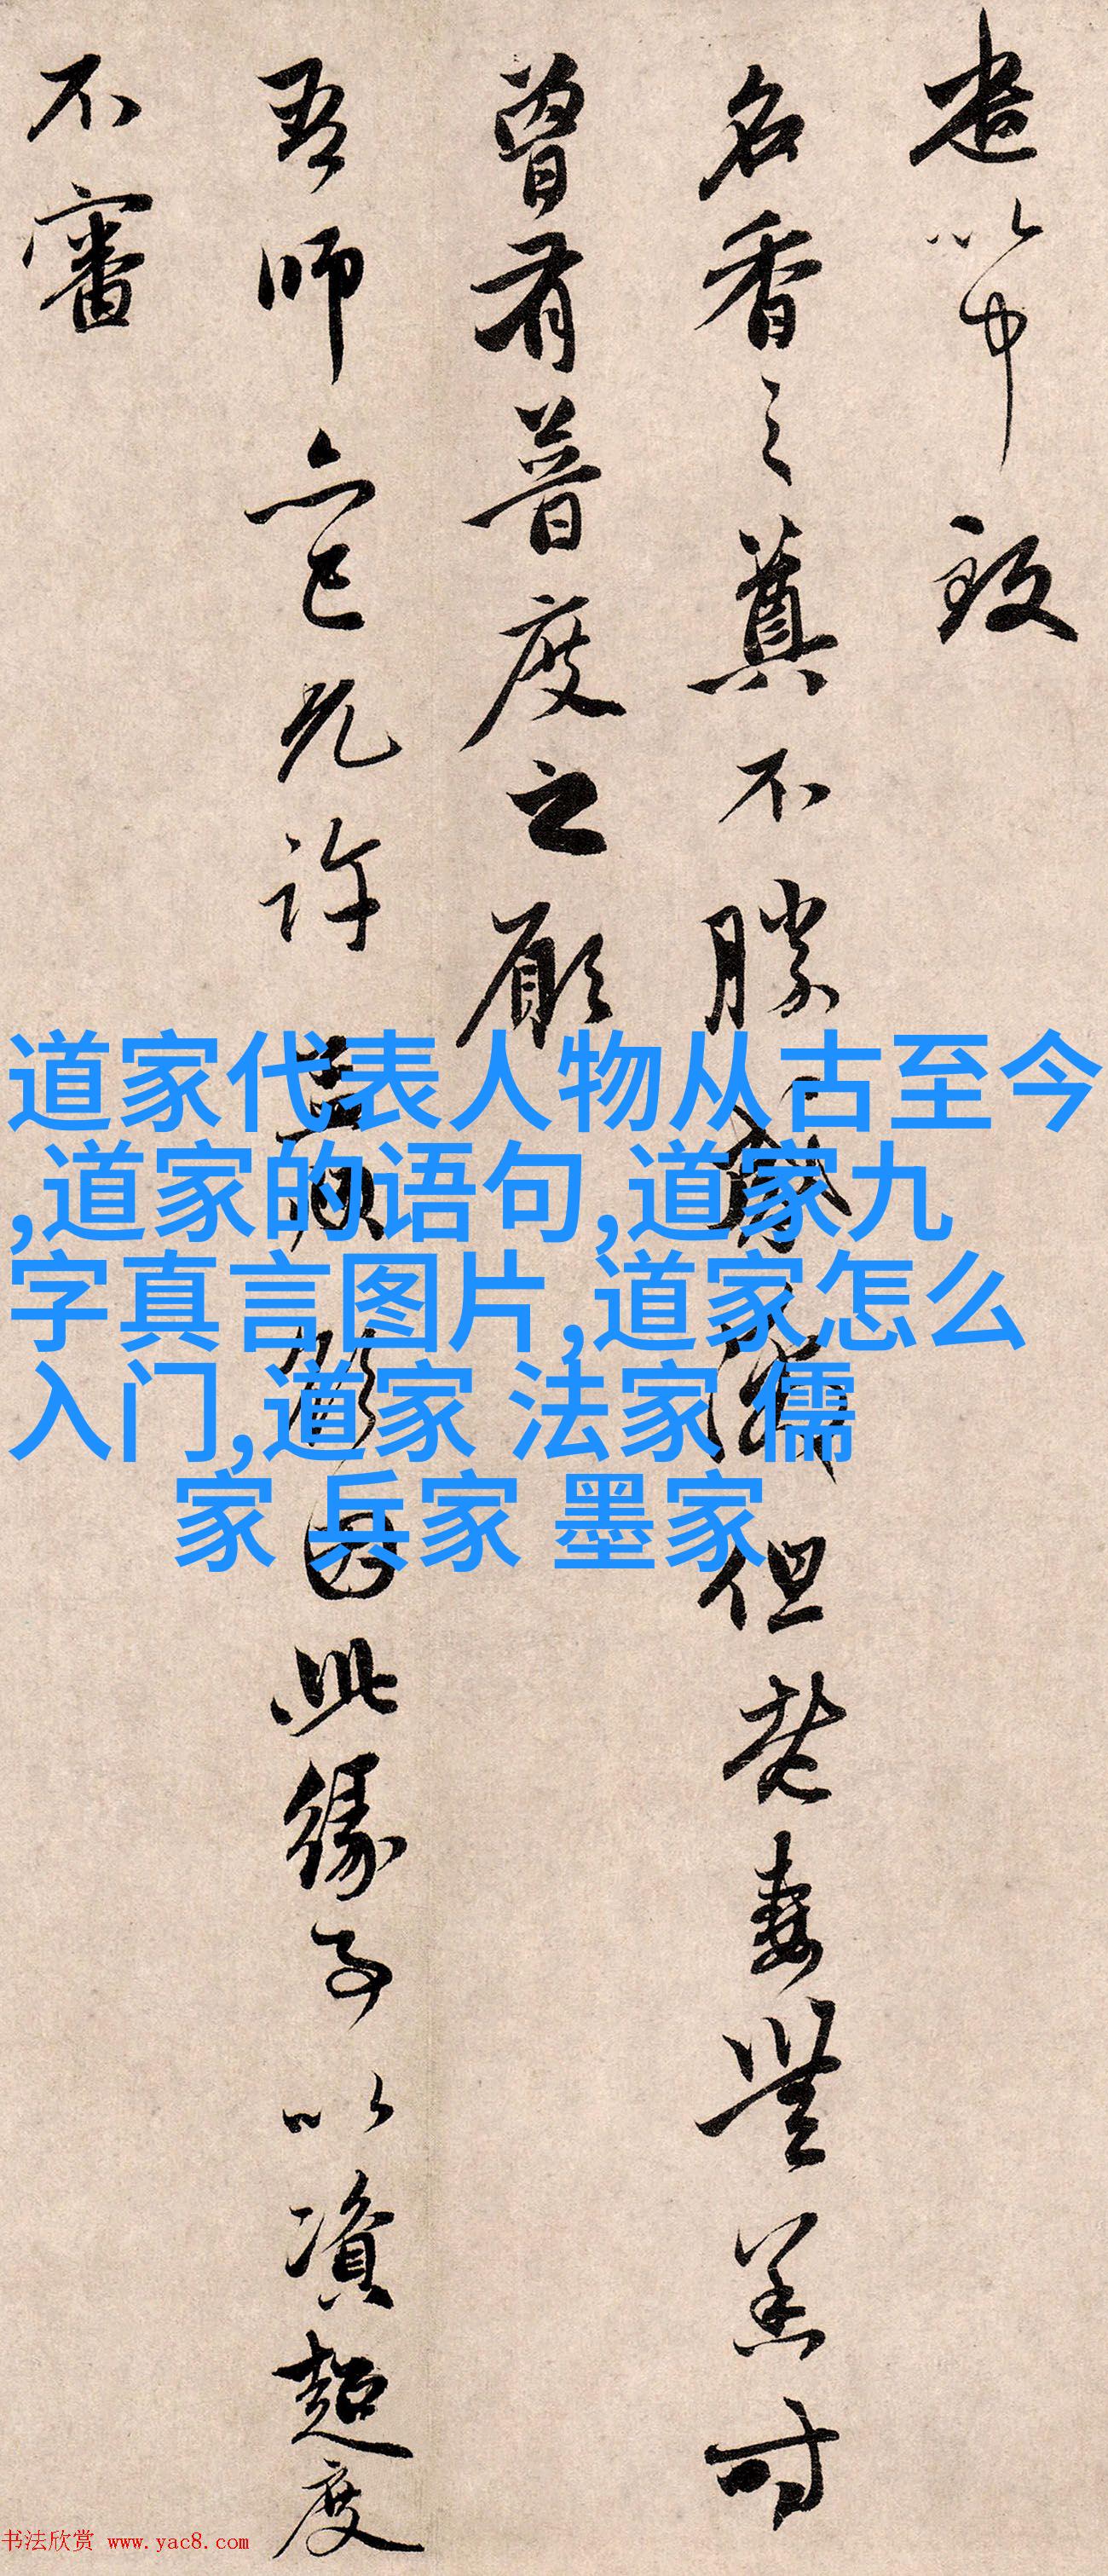 遣以中致
名香之奠不勝感激但楚妻無恙時
曾有普度之願
吾師亦已允許
因此緣子以資超度
不審
道家代表人物从古至今
,道家的语句,道家九
字真言图片,道家怎么
入门,道家 法家 儒
家 兵家 墨家
书法欣赏 www.yac8.com